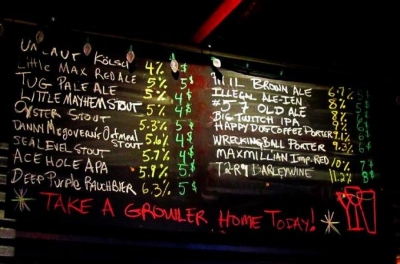 UMLAUT Kölsch 4% 5
Little MAX RED ALE 5% $
TUG PALE ALE 5% 4 $
LITTLE MAYHEM STOUT 5% $
OYSTER STOUT 5.3% 5 $
DANN McGovern's Oatmeal STOUT 5% $
SEA LEVEL STOUT 5.7% 4 $
ACE HOLE APA 5.9% 5 $
DEEP PURPLE RAUCHBIER 6.3% 5 $
BROWN ALE 6.7%
ILLEGAL ALE-IEN 8%
# 5 7 OLD ALE
BIG TWITCH IPA
HAPPY DOG COFFEE PORTER
WRECKING BALL PORTER 9.3%
MAXMILLIAN IMP. RED 10.7%
BARLEYWINE 11.2% 8 $
TAKE A GROWLER HOME TODAY!